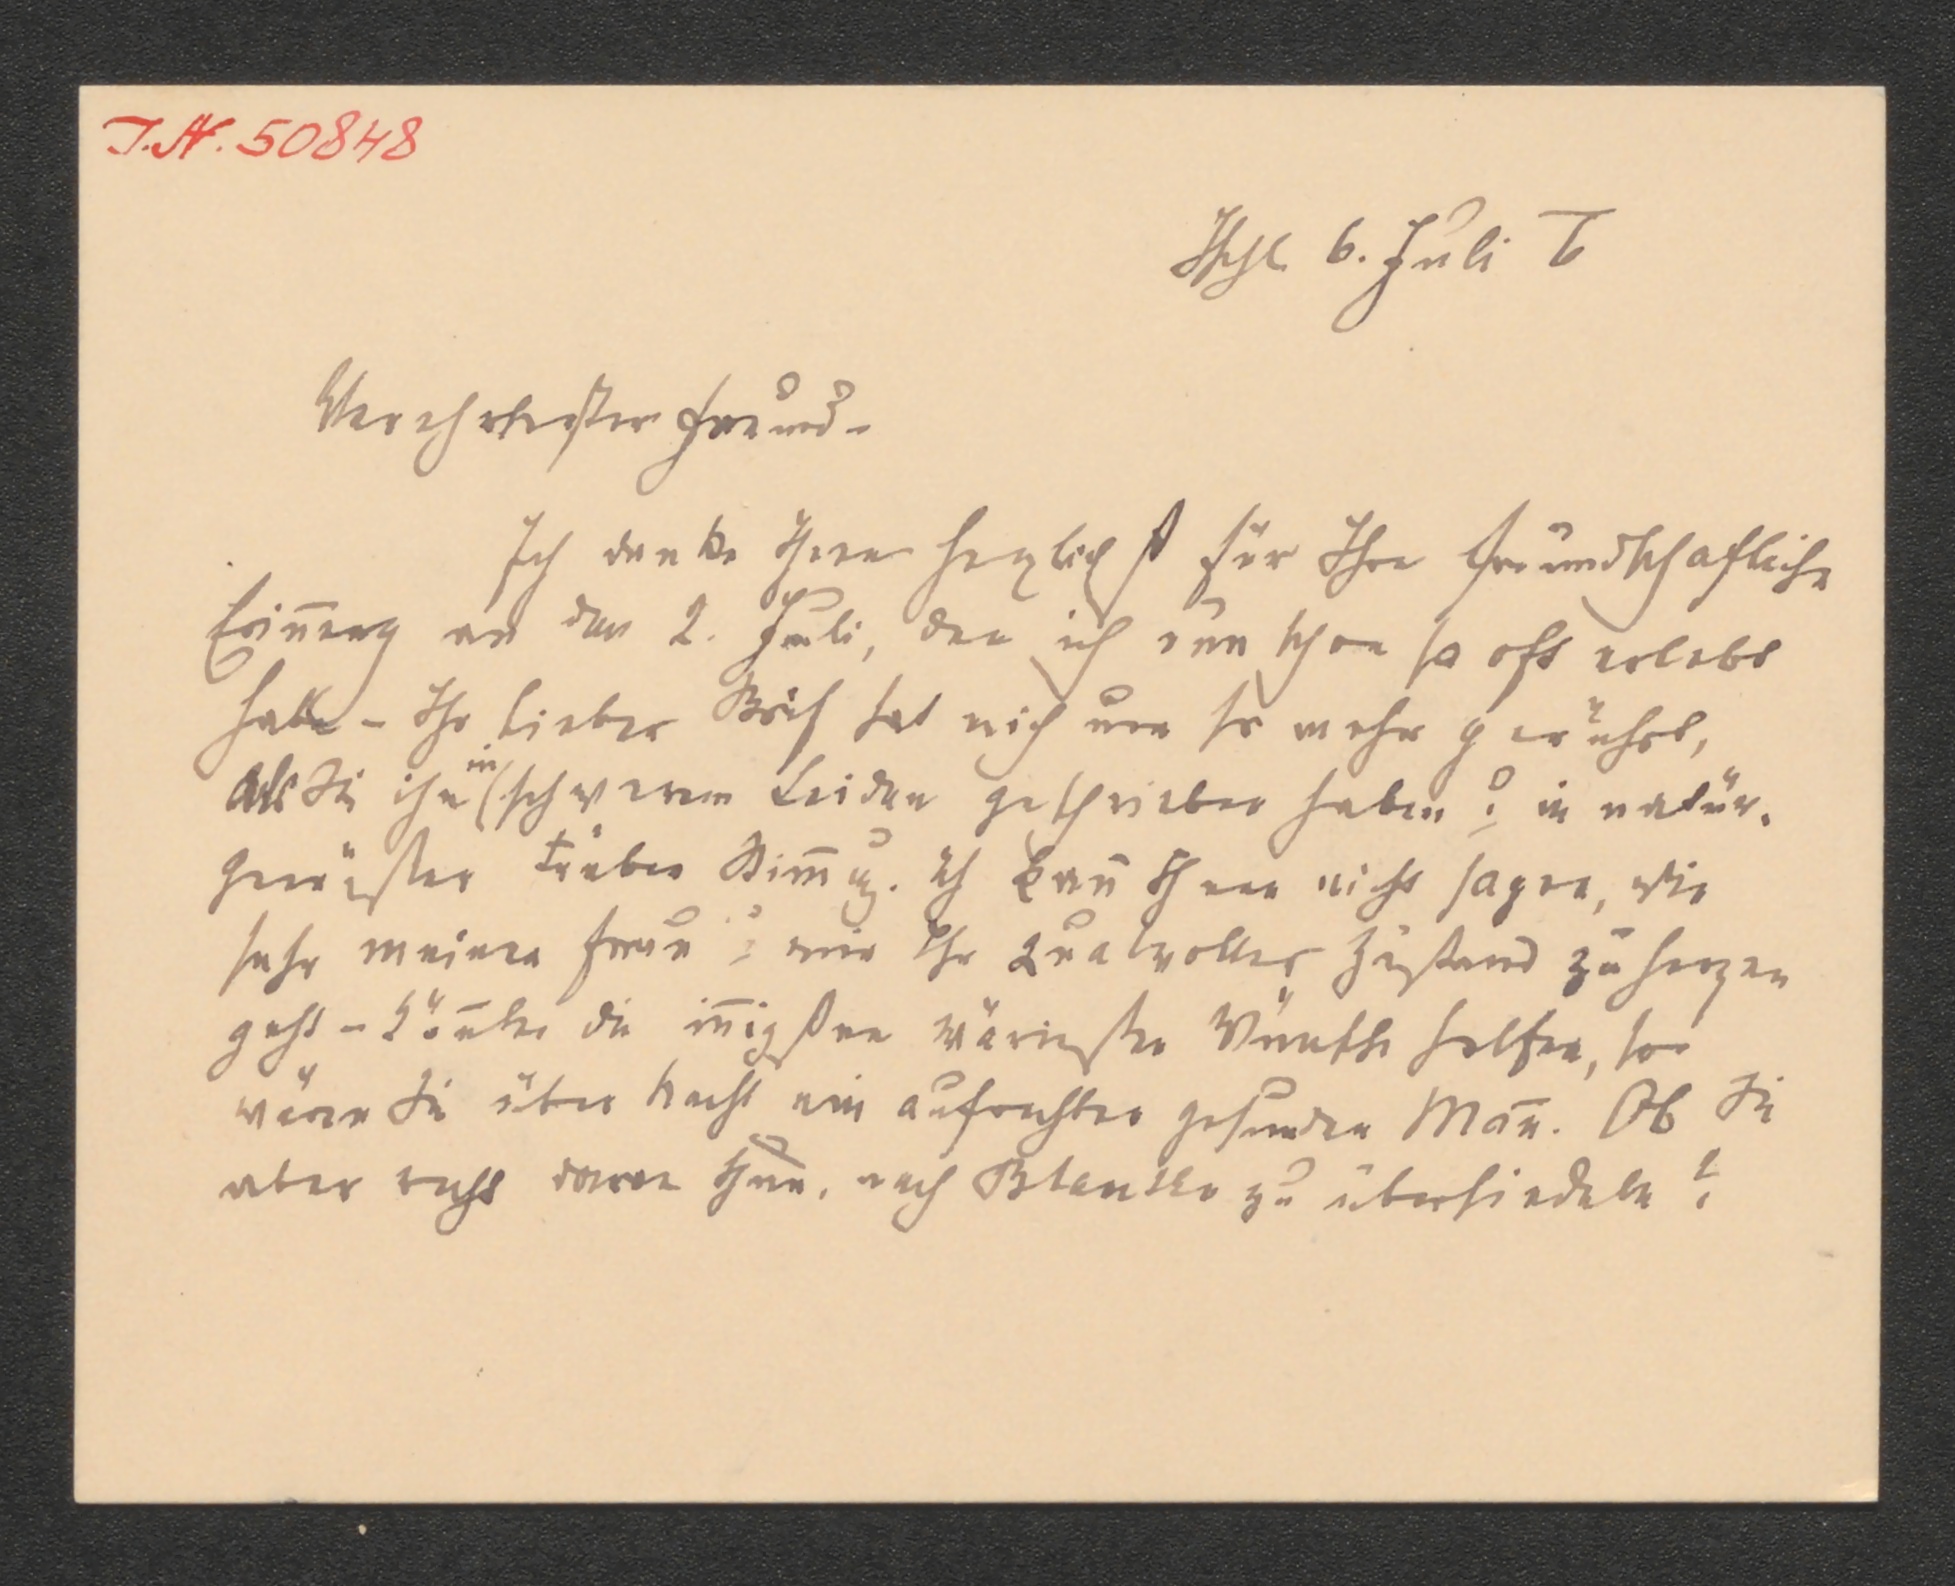 I.N. 50848
Ischl 6. Juli
Verehrtester Freund –
Ich danke Ihnen herzlichst für Ihre freundschafliche
Erin̄erg an den 2. Juli, den ich nun schon so oft erlebt
habe – Ihr lieber Brief hat mich um so mehr gerührt,
als Sie ihn in schwerem Leiden geschrieben haben & in natur-
gemäßer trüber Stim̄ug. Ich kan̄ Ihnen nicht sagen, wie
sehr meiner Frau & mir Ihr qualvoller Zustand zu Herzen
geht – kön̄ten die in̄igsten wärmsten Wünsche helfen, so
wären Sie über Nacht ein aufrechter gesunder Man̄. Ob Sie
aber recht daran thun, nach zu übersiedeln?